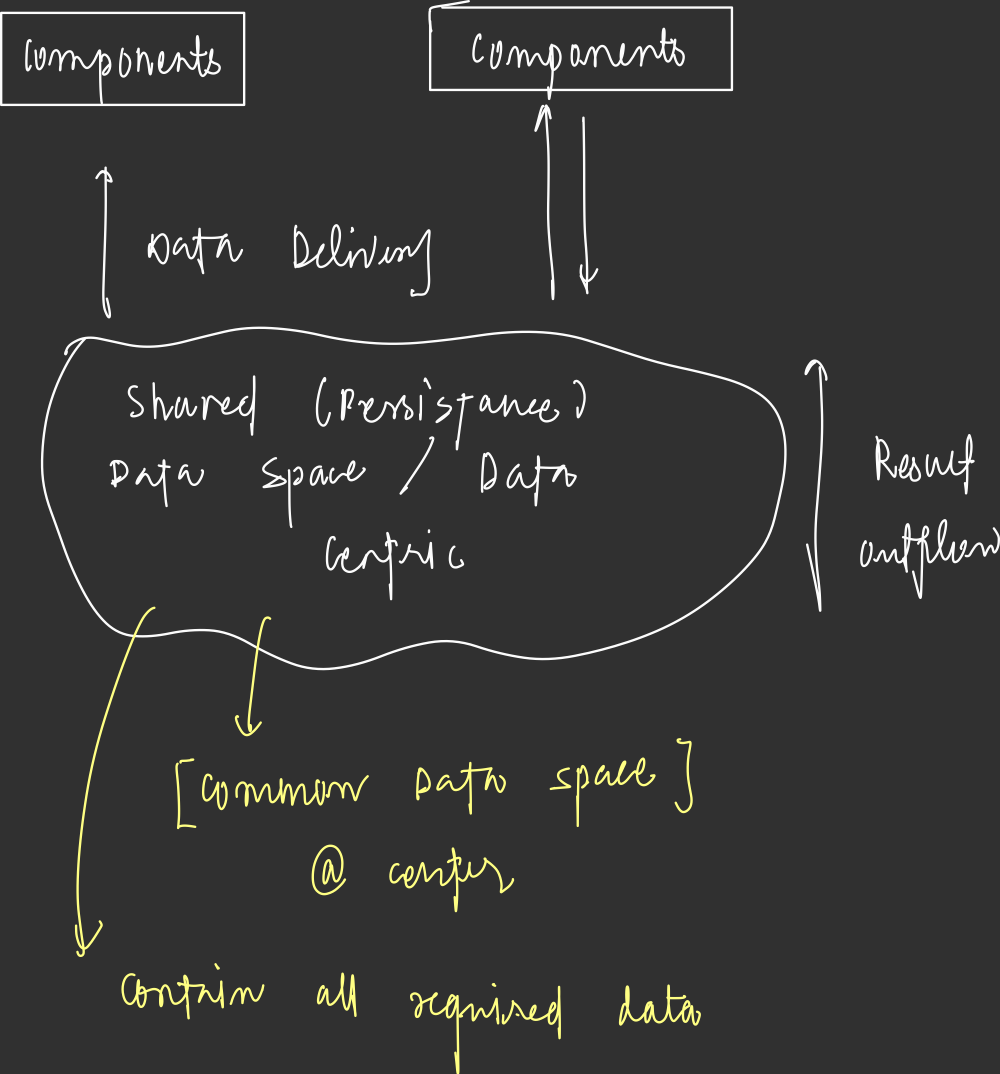 Components
Components
Data Delivery
Shared (Persistance)
Data Space / Data
Centric
Result
outflow
[Common Data space]
@ center
Contain all required data